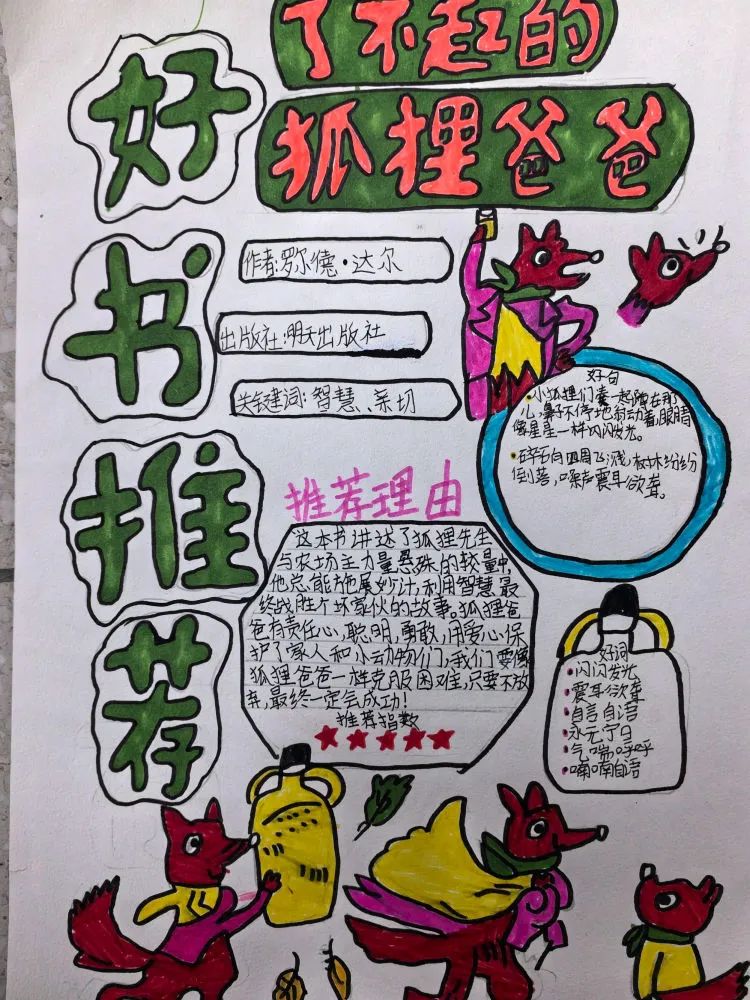 好书推荐
了不起的
狐狸爸爸
作者:罗尔德·达尔
出版社:明天出版社
关键词:智慧、亲切
好句
小狐狸们囊一起蹲在那
儿,鼻子不停地有动着,眼睛
像星星一样闪闪发光。
碎石向四周飞溅,树木纷纷
倒落,噪声震耳欲聋。
推荐理由
这本书讲述了狐狸先生
与农场主力量悬殊的较量中,
他总能施展妙计,利用智慧最
终战胜个坏家伙的故事。狐狸爸
爸有责任心,聪明,勇敢,用爱心保
护了家人和小动物们,我们要像
狐狸爸爸一样克服困难,只要不放
弃,最终一定会成功!
推荐指数
好词
闪闪发光
震耳欲聋
自言自语
永无宁日
气喘呼呼
喃喃自语